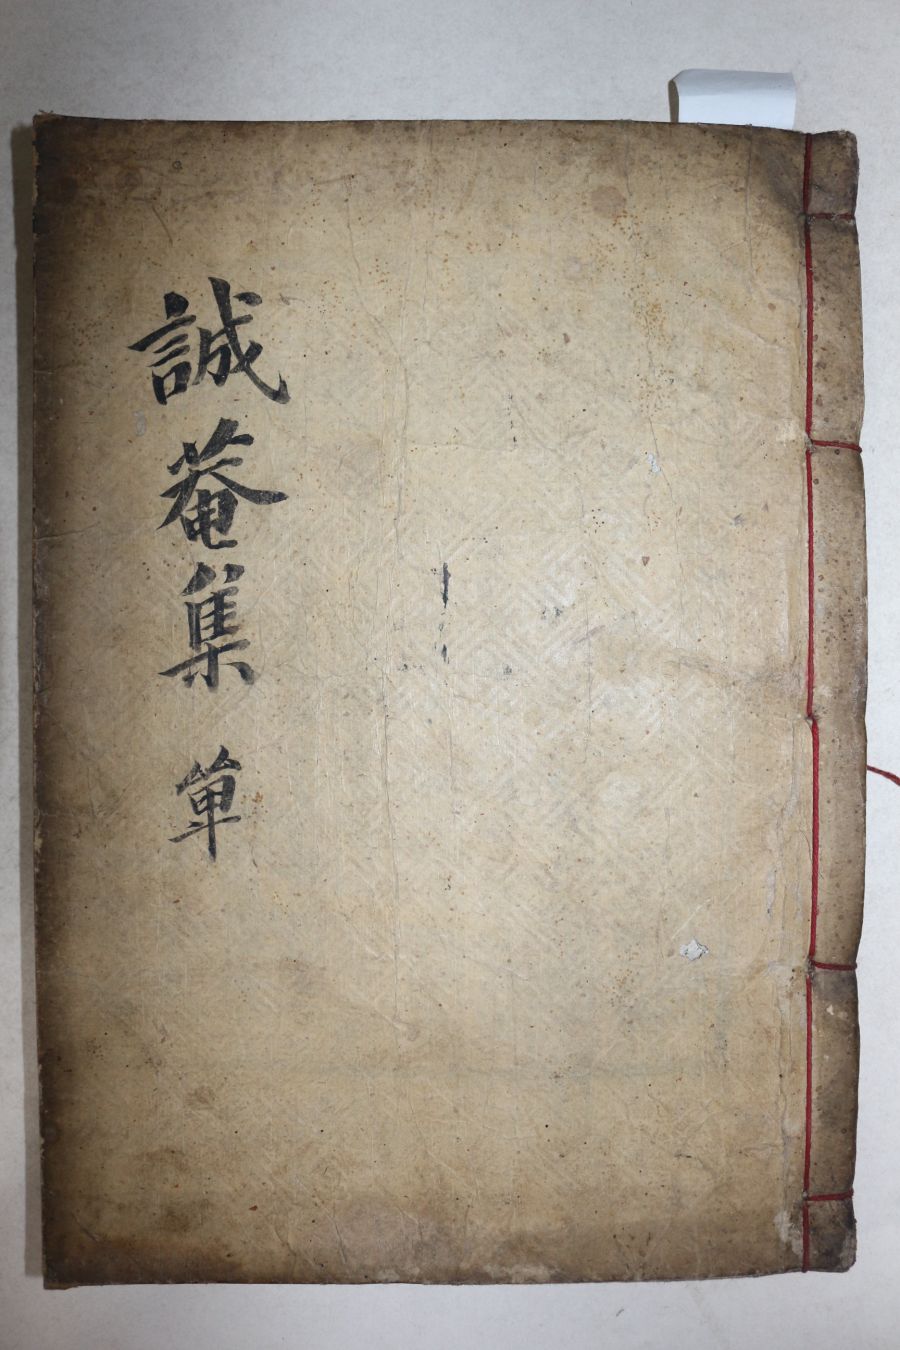 誠菴集 單